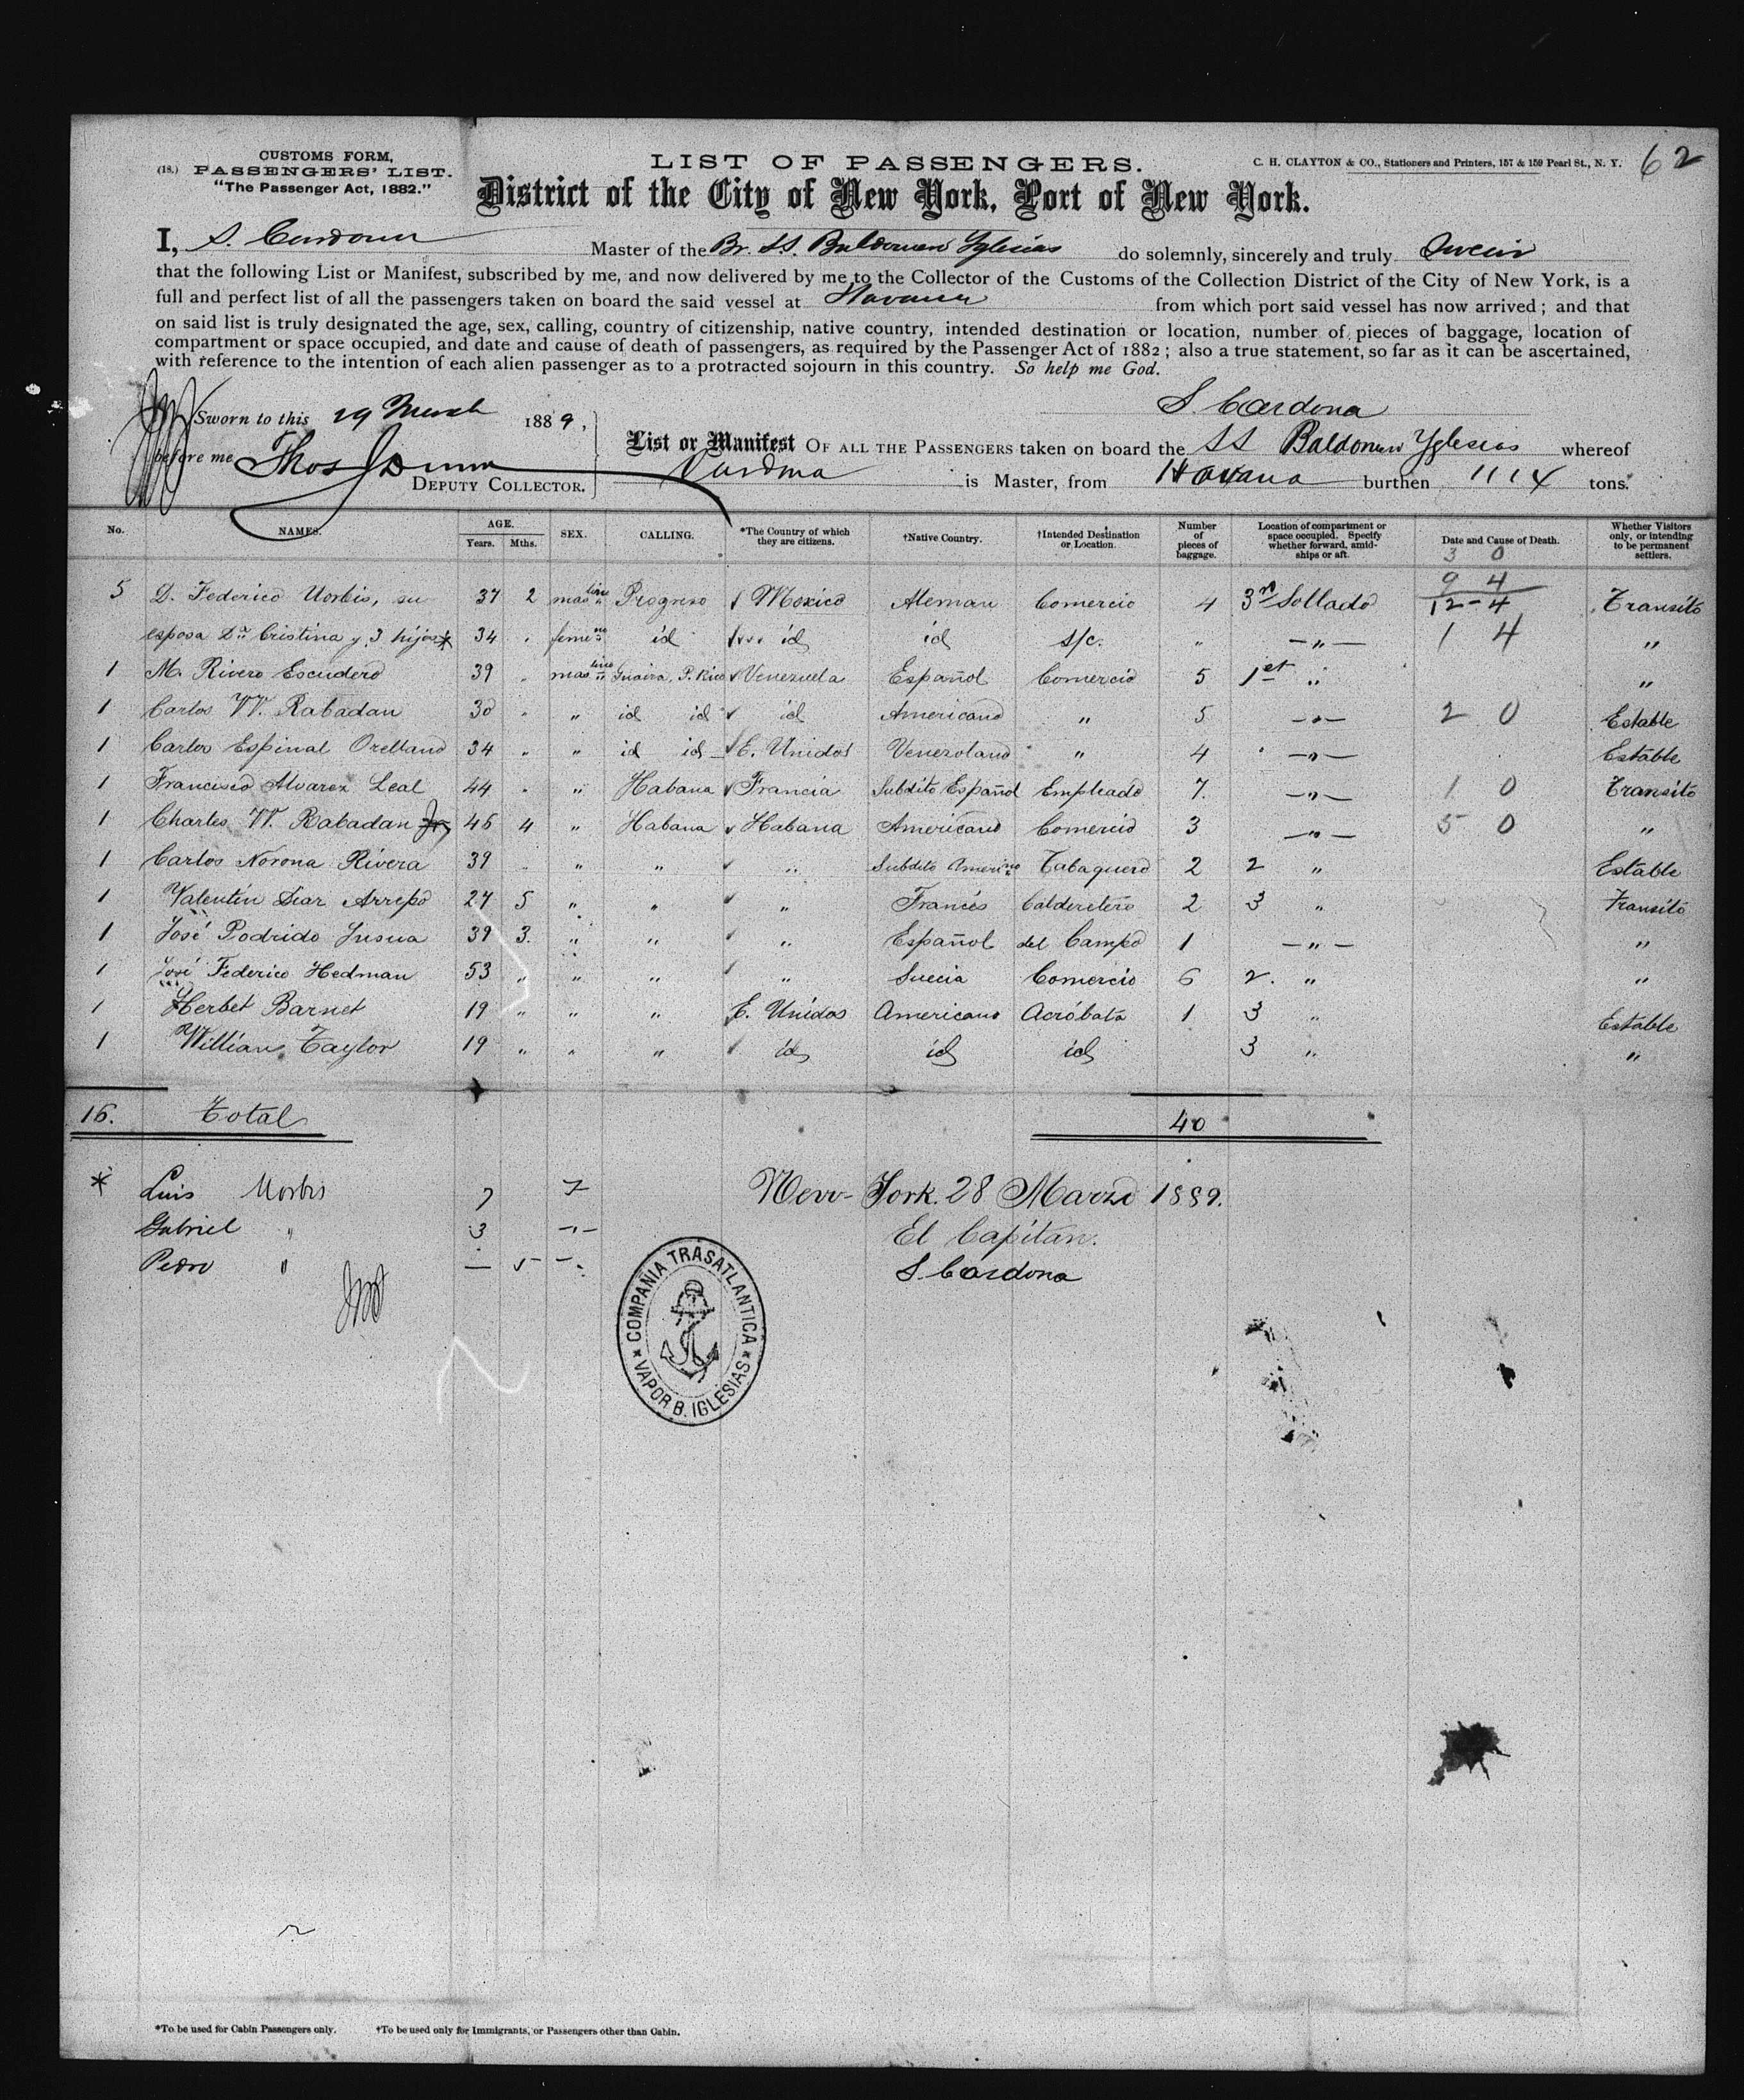 62
CUSTOMS FORM,
(18.) PASSENGERS' LIST.
"The Passenger Act, 1882."
LIST OF PASSENGERS.
C. H. CLAYTON & CO., Stationers and Printers, 157 & 159 Pearl St., N. Y.
District of the City of New York, Port of New York.
I, S. Cardona Master of the Br. S.S. Baldomero Yglesias do solemnly, sincerely and truly Swear
that the following List or Manifest, subscribed by me, and now delivered by me to the Collector of the Customs of the Collection District of the City of New York, is a
full and perfect list of all the passengers taken on board the said vessel at Havana from which port said vessel has now arrived; and that
on said list is truly designated the age, sex, calling, country of citizenship, native country, intended destination or location, number of pieces of baggage, location of
compartment or space occupied, and date and cause of death of passengers, as required by the Passenger Act of 1882; also a true statement, so far as it can be ascertained,
with reference to the intention of each alien passenger as to a protracted sojourn in this country. So help me God.
S. Cardona
Sworn to this 29 March 1889,
before me Thos J Dunn
DEPUTY COLLECTOR.
List or Manifest OF ALL THE PASSENGERS taken on board the SS Baldomero Yglesias whereof
Cardona is Master, from Havana burthen 1114 tons.
No. NAMES. AGE. Years. Mths. SEX. CALLING. *The Country of which they are citizens. †Native Country. †Intended Destination or Location. Number of pieces of baggage. Location of compartment or space occupied. Specify whether forward, amidships or aft. Date and Cause of Death. Whether Visitors only, or intending to be permanent settlers.
3 0
9 4
5 D. Federico Uorbis, su 37 2 masc Progreso Mexico Aleman Comercio 4 3ª Sollado 12-4 Transito
esposa Dª Cristina y 3 hijos * 34 " feme id id id s/c. " -"- 1 4 "
1 M. Rivero Escudero 39 " masc Guaira, P. Rico Venezuela Español Comercio 5 1st " "
1 Carlos W. Rabadan 30 " " id id id Americano " 5 -"- 2 0 Estable
1 Carlos Espinal Orellano 34 " " id id E. Unidos Venezolano " 4 -"- Estable
1 Francisco Alvarez Leal 44 " " Habana Francia Subdito Español Empleado 7. -"- 1 0 Transito
1 Charles W. Rabadan Jr 45 4 " Habana Habana Americano Comercio 3 -"- 5 0 "
1 Carlos Norona Rivera 39 " " " " Subdito Americno Tabaquero 2 2 " Estable
1 Valentin Diaz Arrepo 27 5 " " " Francés Calderetero 2 3 " Transito
1 José Podrido Susua 39 3. " " " Español del Campo 1 -"- "
1 José Federico Hedman 53 " " " " Suecia Comercio 6 2. " "
1 Herbet Barnet 19 " " " E. Unidos Americano Acróbata 1 3 " Estable
1 Willian Taylor 19 " " " id id id 3 " "
16. Total 40
* Luis Uorbis 7 7
Gabriel " 3 -"-
Pedro " — 5 -"
New-York. 28 Marzo 1889.
El Capitan.
S. Cardona
COMPAÑIA TRASATLANTICA
* VAPOR B. IGLESIAS *
*To be used for Cabin Passengers only. †To be used only for Immigrants, or Passengers other than Cabin.